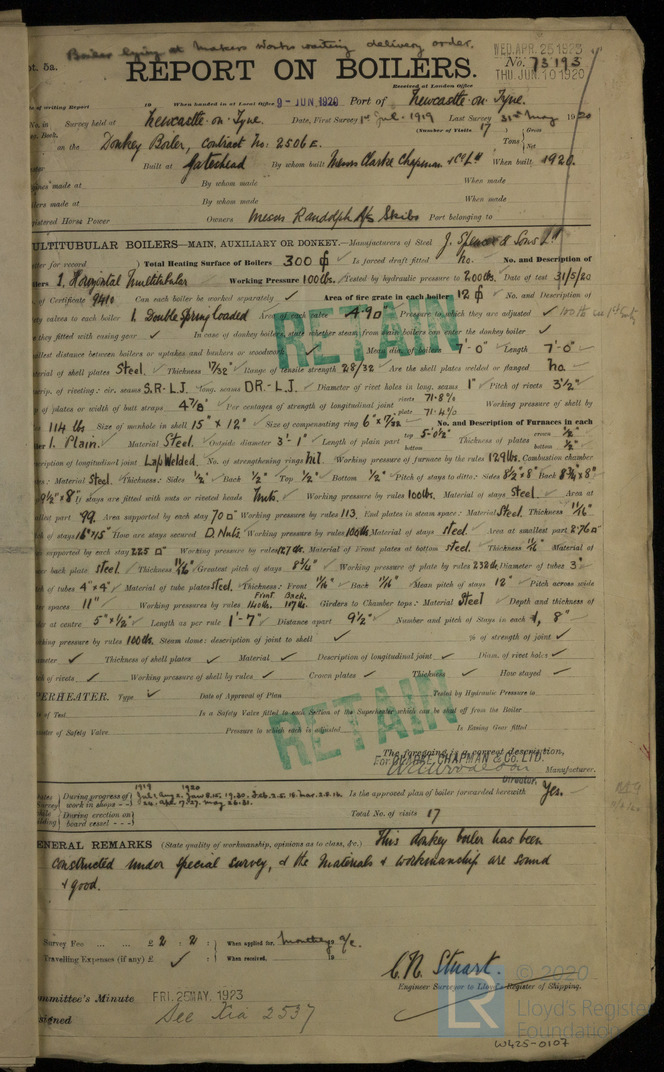 Boiler lying at Makers Works waiting delivery order.
WED. APR. 25 1923
pt. 5a.
No. 73193
REPORT ON BOILERS.
THU. JUN. 10 1920
Received at London Office
of writing Report 19 When handed in at Local Office 9-JUN.1920 Port of Newcastle-on-Tyne.
No. in Survey held at Newcastle-on-Tyne. Date, First Survey 1st Jul-1919 Last Survey 31st May 1920
Book. (Number of Visits 17)
on the Donkey Boiler, contract No: 2506E. Tons Gross Net
Built at Gateshead By whom built Messrs Clarke Chapman & Co Ld When built 1920.
made at By whom made When made
made at By whom made When made
Horse Power Owners Messrs Randolph A/S Skibs Port belonging to
MULTITUBULAR BOILERS—MAIN, AUXILIARY OR DONKEY.—Manufacturers of Steel J. Spencer & Sons Ld
for record Total Heating Surface of Boilers 300 Is forced draft fitted no. No. and Description of
1. Horizontal Multitubular Working Pressure 100lbs. Tested by hydraulic pressure to 200lbs. Date of test 31/5/20
of Certificate 9410 Can each boiler be worked separately Area of fire grate in each boiler 12 No. and Description of
valves to each boiler 1. Double Spring Loaded Area of each valve 4.90 Pressure to which they are adjusted
they fitted with easing gear In case of donkey boilers, state whether steam from main boilers can enter the donkey boiler
smallest distance between boilers or uptakes and bunkers or woodwork Mean dia. of boilers 7'-0" Length 7'-0"
Material of shell plates Steel. Thickness 17/32" Range of tensile strength 28/32 Are the shell plates welded or flanged no.
Descrip. of riveting: cir. seams S.R-L.J. long. seams DR.-L.J. Diameter of rivet holes in long. seams 1" Pitch of rivets 3½"
of plates or width of butt straps 4⅞" Per centages of strength of longitudinal joint rivets 71.8% plate 71.4% Working pressure of shell by
114 lbs Size of manhole in shell 15" x 12" Size of compensating ring 6" x 17/32 No. and Description of Furnaces in each
1. Plain. Material Steel. Outside diameter 3'-1" Length of plain part top 5'-0½" bottom Thickness of plates crown ½" bottom ½"
Description of longitudinal joint Lap Welded. No. of strengthening rings nil Working pressure of furnace by the rules 129lbs. Combustion chamber
Material Steel Thickness: Sides ½" Back ½" Top ½" Bottom ½" Pitch of stays to ditto: Sides 8½" x 8" Back 8¾" x 8"
9½" x 8" If stays are fitted with nuts or riveted heads Nuts. Working pressure by rules 100lbs. Material of stays Steel Area at
smallest part .99 Area supported by each stay 70 Working pressure by rules 113. End plates in steam space: Material Steel. Thickness 11/16"
of stays 15" x 15" How are stays secured D. Nuts Working pressure by rules 100lbs Material of stays steel Area at smallest part 2.76
supported by each stay 225 Working pressure by rules 127lbs. Material of Front plates at bottom steel. Thickness 11/16 Material of
back plate steel. Thickness 11/16 Greatest pitch of stays 8¾" Working pressure of plate by rules 232lbs Diameter of tubes 3"
of tubes 4" x 4" Material of tube plates Steel. Thickness: Front 11/16" Back 11/16" Mean pitch of stays 12" Pitch across wide
spaces 11" Working pressures by rules Front Back 117lbs. Girders to Chamber tops: Material Steel Depth and thickness of
at centre 5" x ½" Length as per rule 1'-7" Distance apart 9½" Number and pitch of Stays in each 1, 8"
Working pressure by rules 100lbs. Steam dome: description of joint to shell % of strength of joint
Diameter Thickness of shell plates Material Description of longitudinal joint Diam. of rivet holes
of rivets Working pressure of shell by rules Crown plates Thickness How stayed
SUPERHEATER. Type Date of Approval of Plan Tested by Hydraulic Pressure to
of Test Is a Safety Valve fitted to each Section of the Superheater which can be shut off from the Boiler
Diameter of Safety Valve Pressure to which each is adjusted Is Easing Gear fitted
RETAIN
RETAIN
The foregoing is a correct description,
For CLARKE, CHAPMAN & CO. LTD.
Director. Manufacturer.
During progress of work in shops
During erection on board vessel
1919 1920
Is the approved plan of boiler forwarded herewith Yes.
Total No. of visits 17
GENERAL REMARKS (State quality of workmanship, opinions as to class, &c.) This donkey boiler has been
constructed under special survey, & the Materials & workmanship are sound
& good.
Survey Fee ... ... £ 2 : 2 : When applied for, Monthly a/c.
Travelling Expenses (if any) £ When received, 19
C.N. Stuart.
Engineer Surveyor to Lloyd's Register of Shipping.
Committee's Minute FRI. 25 MAY. 1923
Assigned See Xia 2537
© 2020
LR Lloyd's Register Foundation
W425-0107